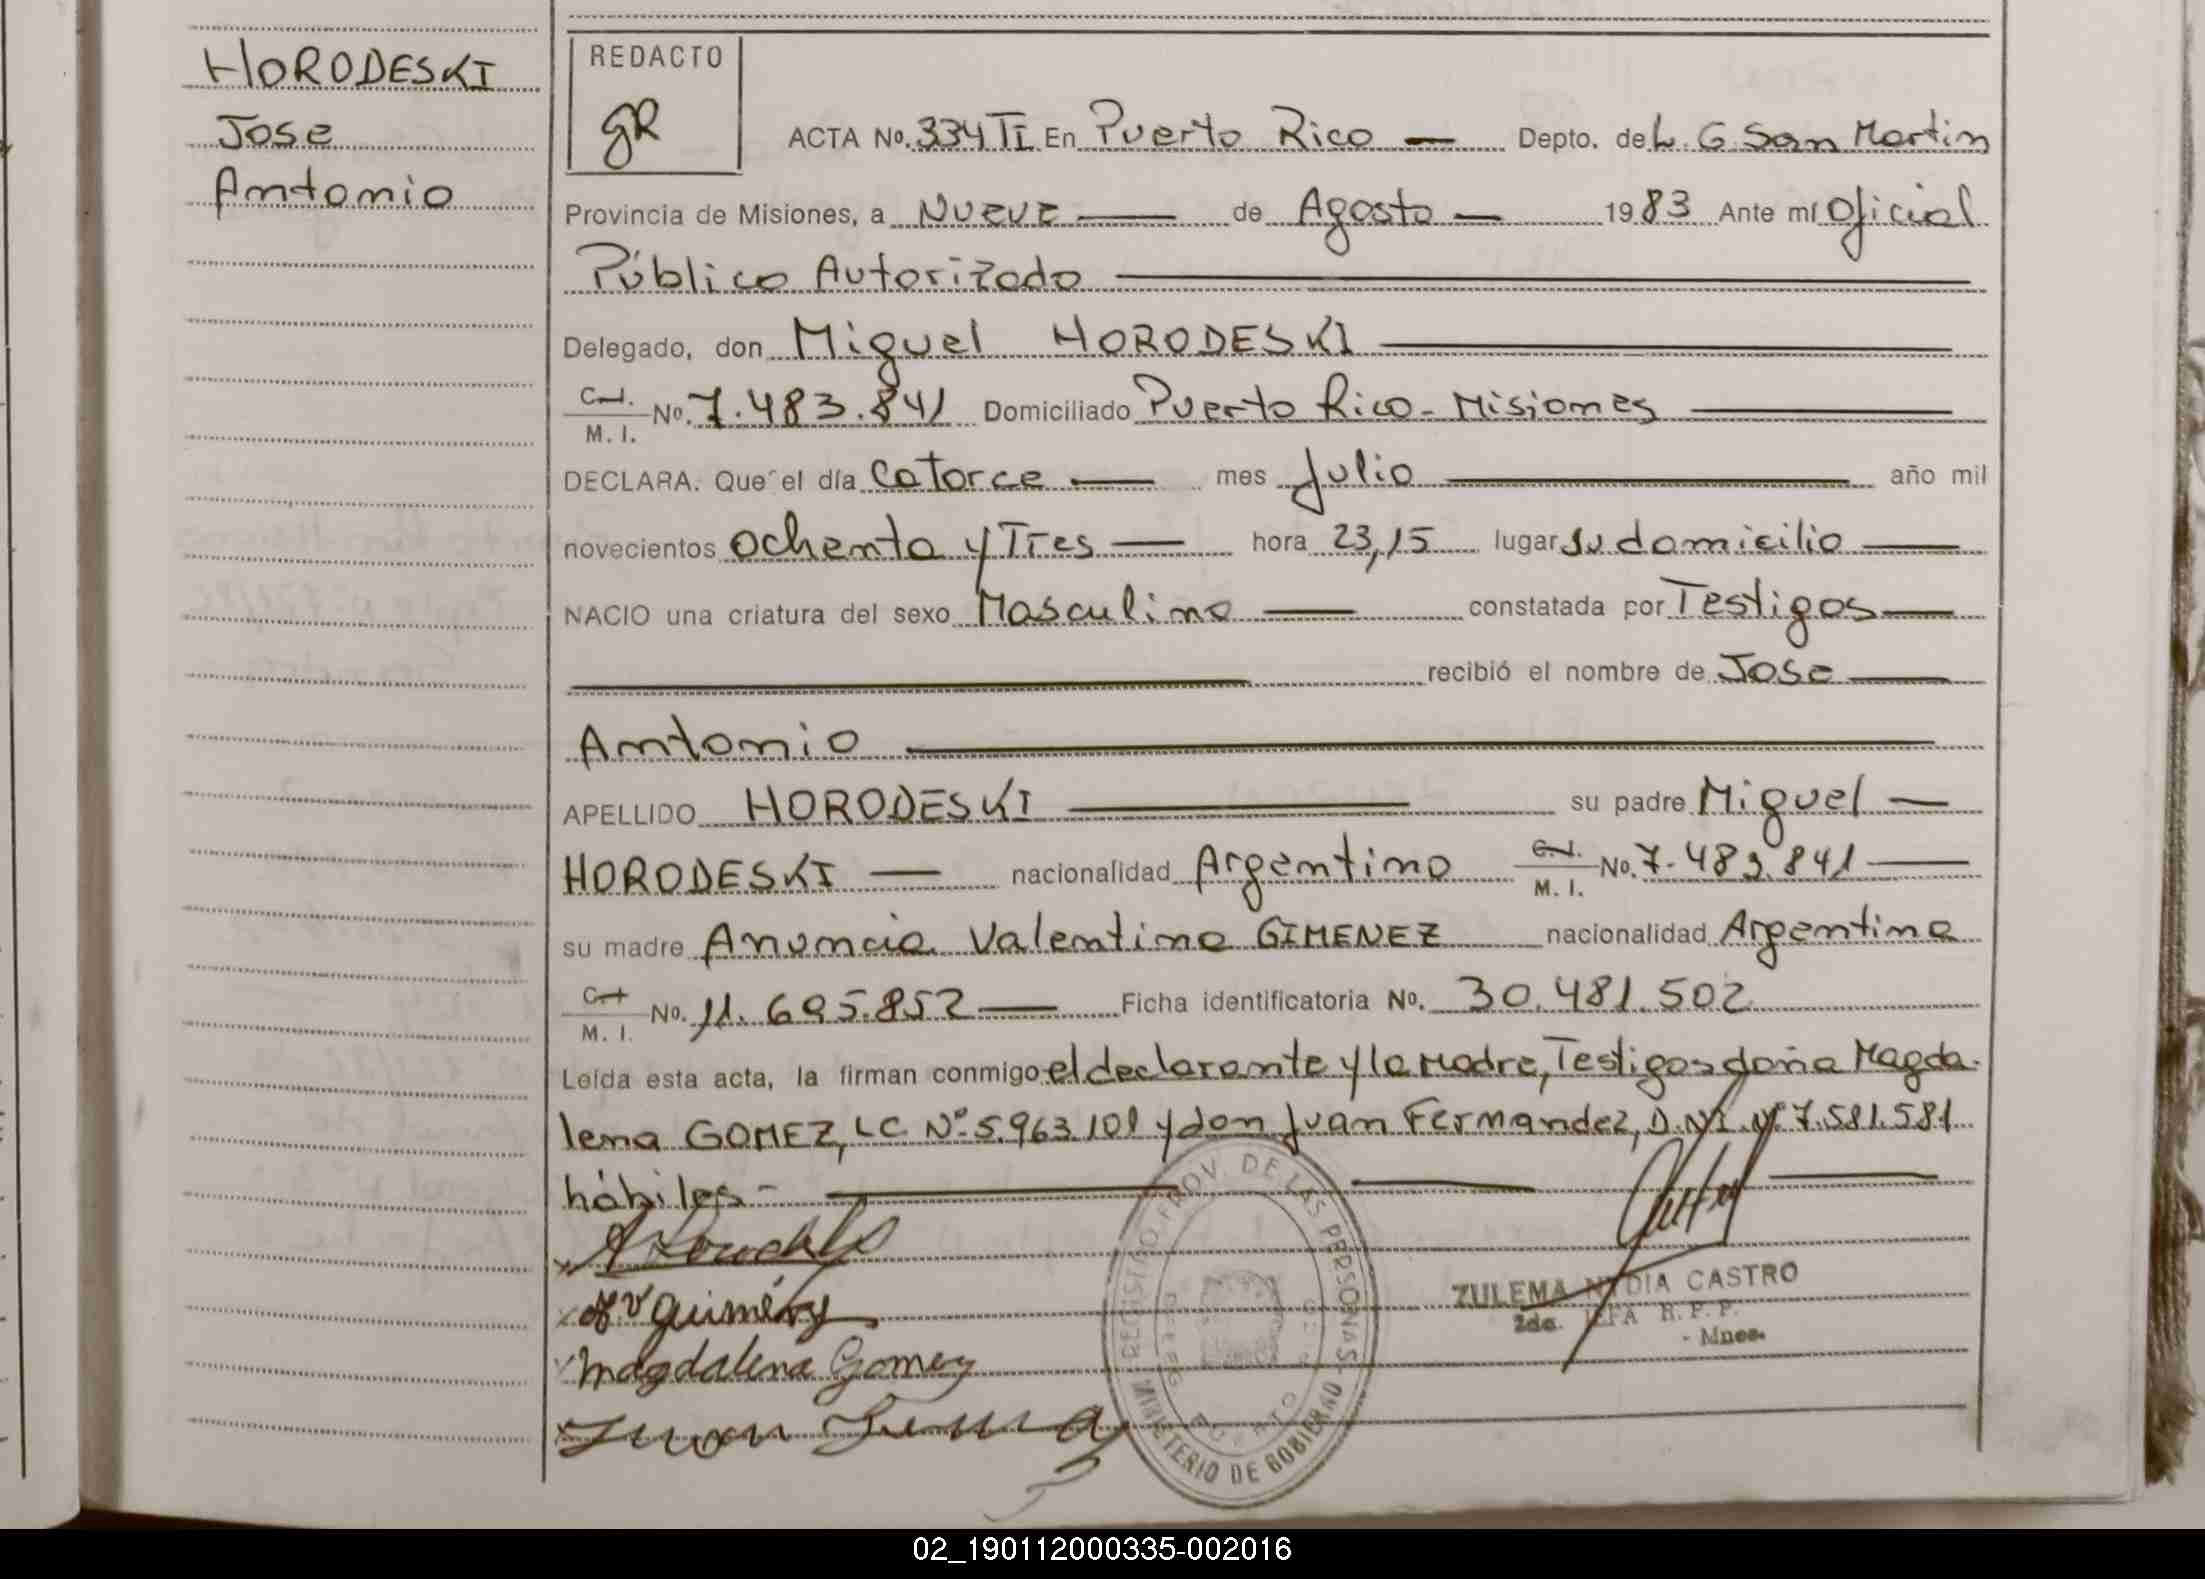 HORODESKI
Jose
Antonio
REDACTO
gR
ACTA No. 334 TI En Puerto Rico — Depto. de L. G. San Martin
Provincia de Misiones, a NUEVE — de Agosto — 1983 Ante mí Oficial
Público Autorizado
Delegado, don Miguel HORODESKI
C.I. M. I. No. 7.483.841 Domiciliado Puerto Rico - Misiones
DECLARA. Que el día Catorce — mes Julio — año mil
novecientos ochenta y Tres — hora 23,15 lugar su domicilio —
NACIO una criatura del sexo Masculino — constatada por Testigos —
recibió el nombre de Jose —
Antonio
APELLIDO HORODESKI — su padre Miguel —
HORODESKI — nacionalidad Argentino C.I. M. I. No. 7.483.841 —
su madre Anuncia Valentina GIMENEZ nacionalidad Argentina
C.I. M. I. No. 11.695.852 — Ficha identificatoria No. 30.481.502
Leída esta acta, la firman conmigo el declarante y la Madre, Testigos doña Magda-
lena GOMEZ, LC. Nº 5.963.101 y don Juan Fernandez, D.N.I. Nº 7.581.581
hábiles -
Magdalena Gomez
REGISTRO PROV. DE LAS PERSONAS
MINISTERIO DE GOBIERNO
ZULEMA NYDIA CASTRO
2da. JEFA R. P. P.
- Mnes.
02_190112000335-002016